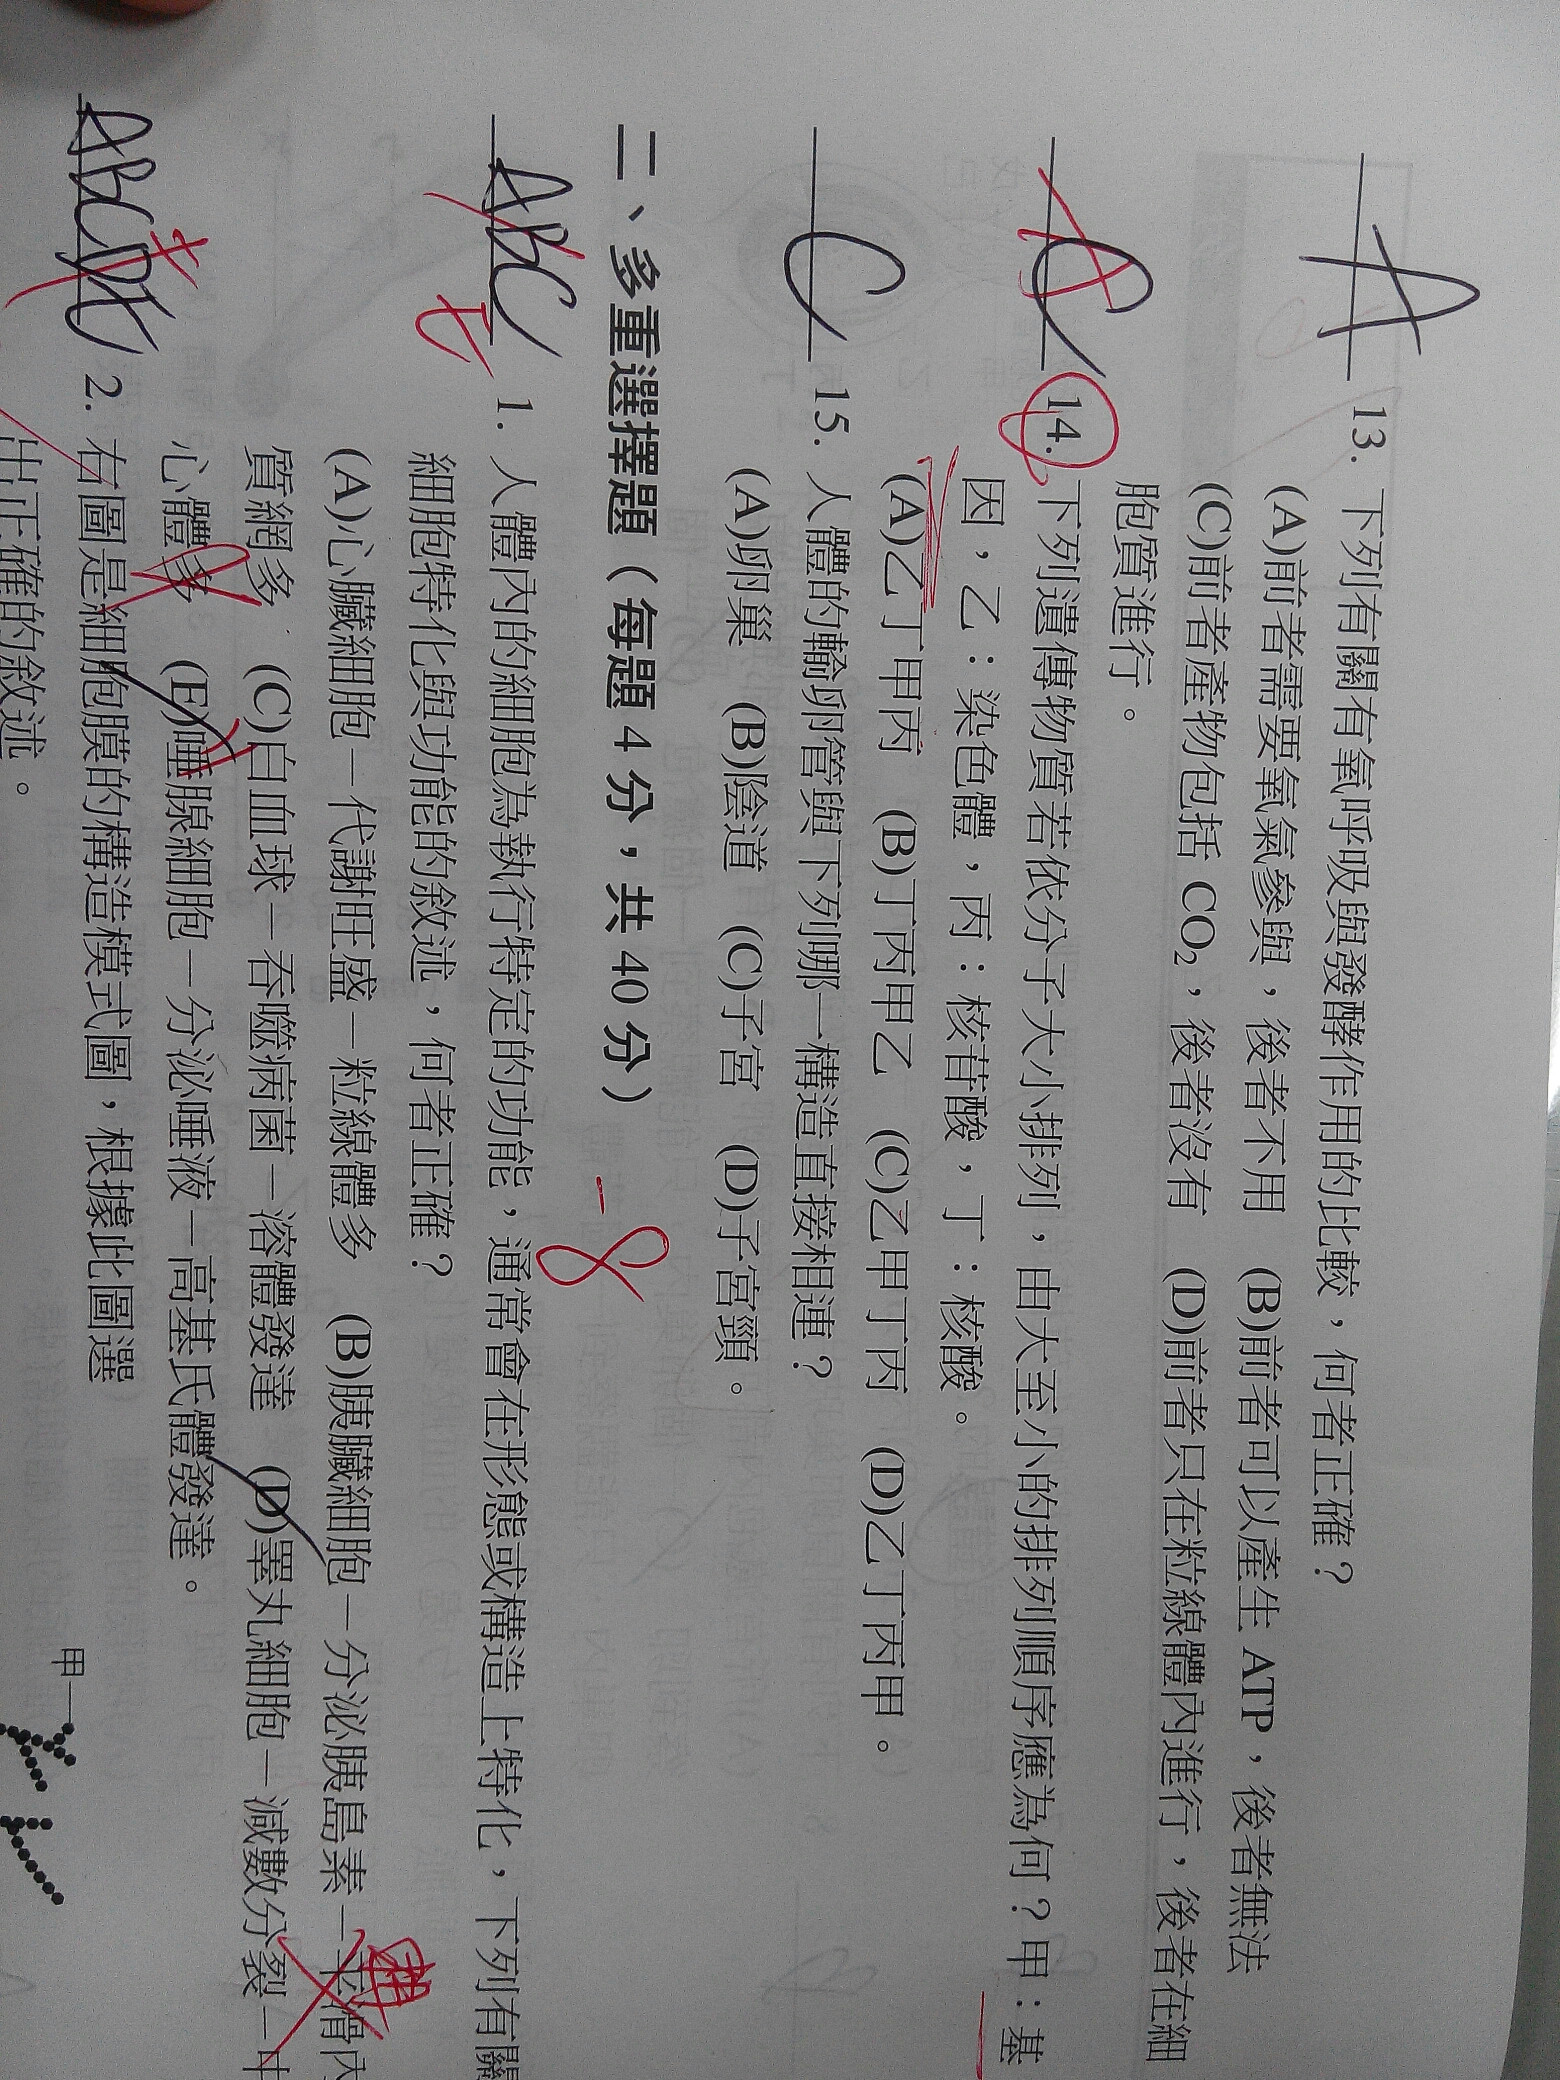 A 13. 下列有關有氧呼吸與發酵作用的比較，何者正確？
(A)前者需要氧氣參與，後者不用 (B)前者可以產生 ATP，後者無法
(C)前者產物包括 CO₂，後者沒有 (D)前者只在粒線體內進行，後者在細
胞質進行。
C 14. 下列遺傳物質若依分子大小排列，由大至小的排列順序應為何？甲：基
因，乙：染色體，丙：核苷酸，丁：核酸。
(A)乙丁甲丙 (B)丁丙甲乙 (C)乙甲丁丙 (D)乙丁丙甲。
C 15. 人體的輸卵管與下列哪一構造直接相連？
(A)卵巢 (B)陰道 (C)子宮 (D)子宮頸。
二、多重選擇題（每題 4 分，共 40 分） -8
ABC E 1. 人體內的細胞為執行特定的功能，通常會在形態或構造上特化，下列有關
細胞特化與功能的敘述，何者正確？
(A)心臟細胞－代謝旺盛－粒線體多 (B)胰臟細胞－分泌胰島素－平滑內
質網多 (C)白血球－吞噬病菌－溶體發達 (D)睪丸細胞－減數分裂－中
心體多 (E)唾腺細胞－分泌唾液－高基氏體發達。
ABCDE 2. 右圖是細胞膜的構造模式圖，根據此圖選
出正確的敘述。
甲